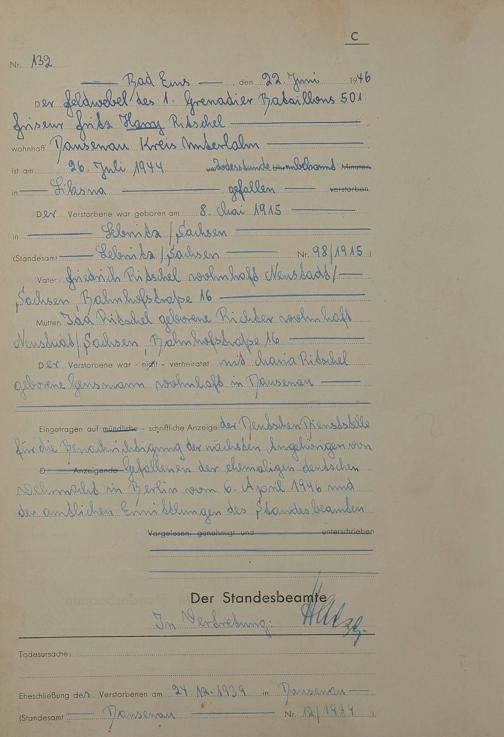 C
Nr. 132
Bad Ems, den 22. Juni 1946
Der Feldwebel des 1. Grenadier Bataillons 501
Friseur Fritz Hans Ritschel
wohnhaft Dausenau Kreis Unterlahn
ist am 26. Juli 1944 Todesstunde unbekannt Minuten
in gefallen verstorben
Der Verstorbene war geboren am 8. Mai 1915
in Sebnitz / Sachsen
(Standesamt Sebnitz / Sachsen Nr. 98/1915)
Vater: Friedrich Ritschel wohnhaft Neustadt/
Sachsen, Bahnhofstraße 16
Mutter: Ida Ritschel geborene Richter wohnhaft
Neustadt/Sachsen, Bahnhofstraße 16
Der Verstorbene war - nicht - verheiratet mit Maria Ritschel
geborene wohnhaft in Dausenau
Eingetragen auf mündliche - schriftliche Anzeige der Deutschen Dienststelle
für die Benachrichtigung der nächsten Angehörigen von
D Anzeigende Gefallenen der ehemaligen deutschen
Wehrmacht in Berlin vom 6. April 1946 und
der amtlichen Ermittlungen des Standesbeamten
Vorgelesen, genehmigt und unterschrieben
Der Standesbeamte
In Vertretung:
Todesursache:
Eheschließung des Verstorbenen am 24.12.1939 in Dausenau
(Standesamt Dausenau Nr. 12/1939)